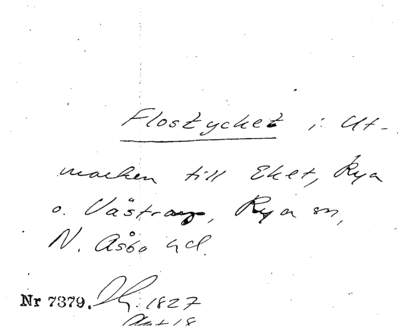 Flostycket i Ut-
marken till Eket, Rya
o. Västra, Rya sn,
N. Åsbo hd.
Nr 7379. 1827